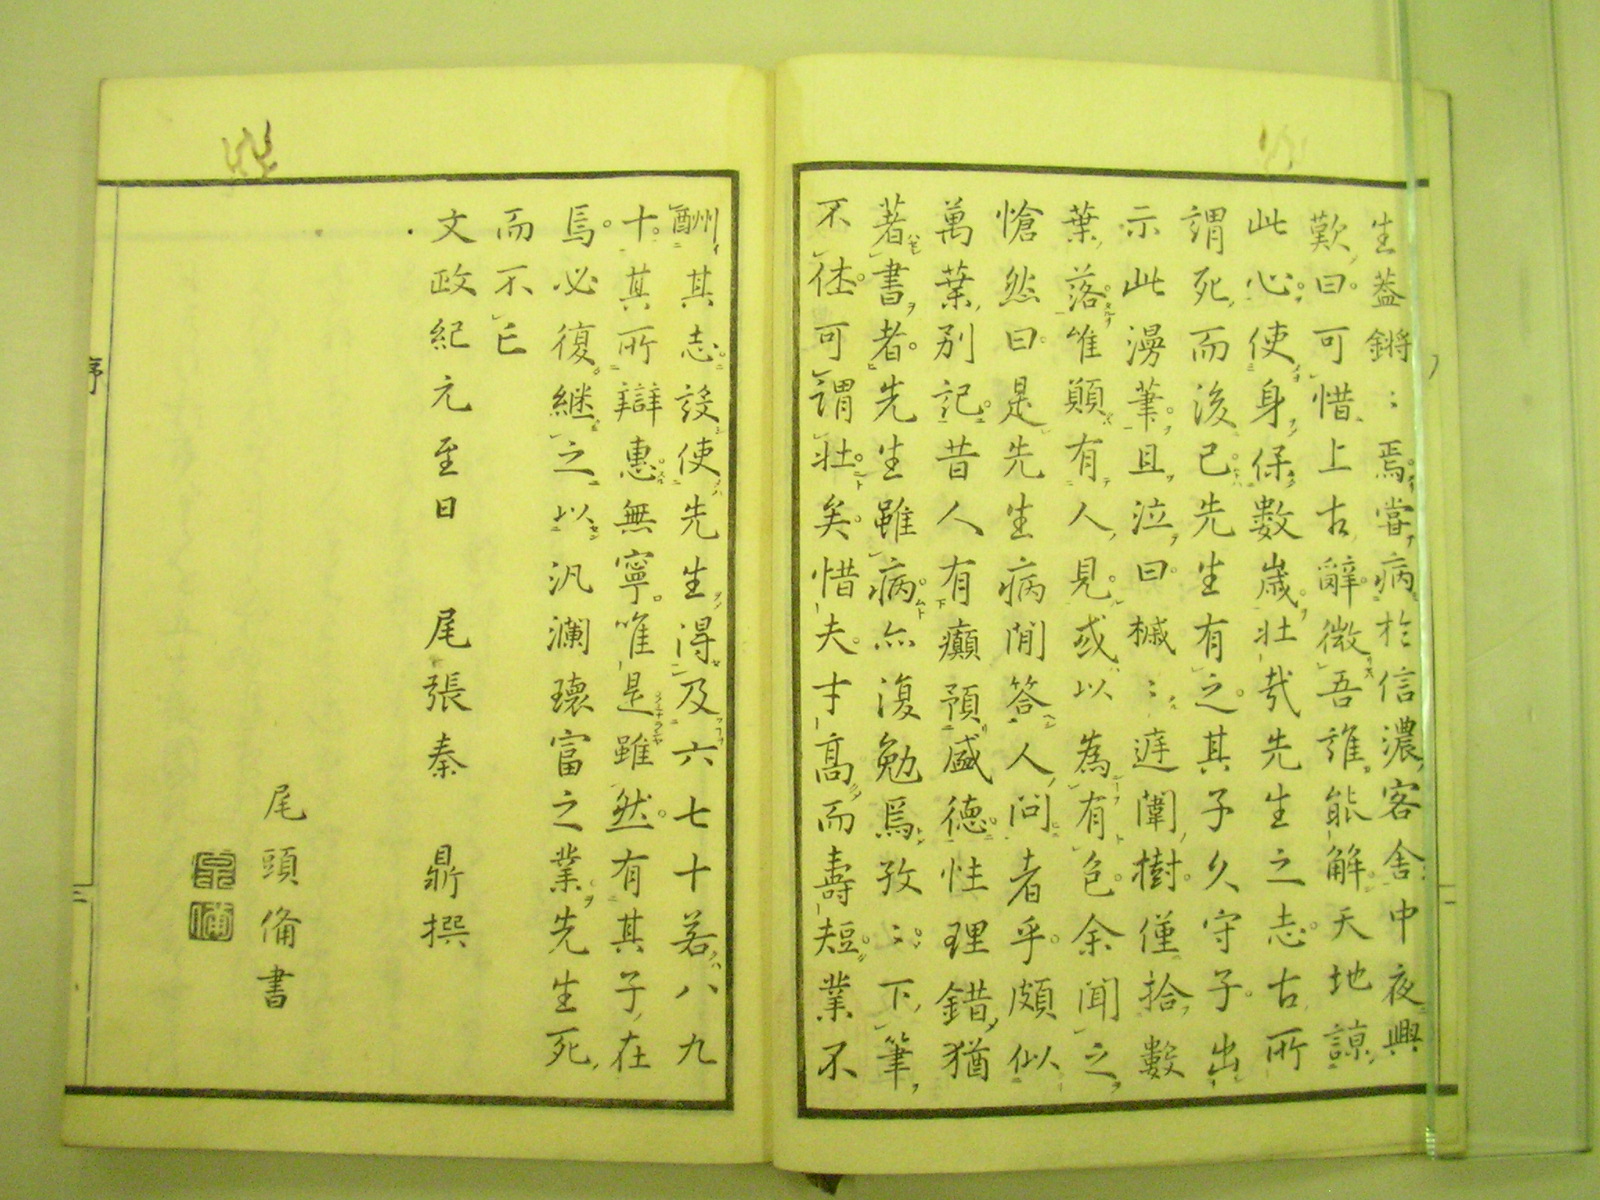 生蓋鏘〻焉嘗病於信濃客舎中夜興
歎曰可惜上古辭微吾誰能解天地諒
此心使身保數歳壯哉先生之志古所
謂死而後已先生有之其子久守子出
示此漫筆且泣曰槭〻遅闈樹僅拾數
葉落唯顛有人見或以為有色余聞之
愴然曰是先生病間答人問者乎頗似
萬葉別記昔人有癲預盛德性理錯猶
著書者先生雖病亦復勉焉孜〻下筆
不徃可謂壯矣惜夫才高而壽短業不
酬其志設使先生得及六七十若八九
十其所辯惠無寧唯是雖然有其子在
焉必復継之以汎瀾瓌富之業先生死
而不亡
文政紀元至日 尾張秦 鼎撰
尾頭俻書
序
三